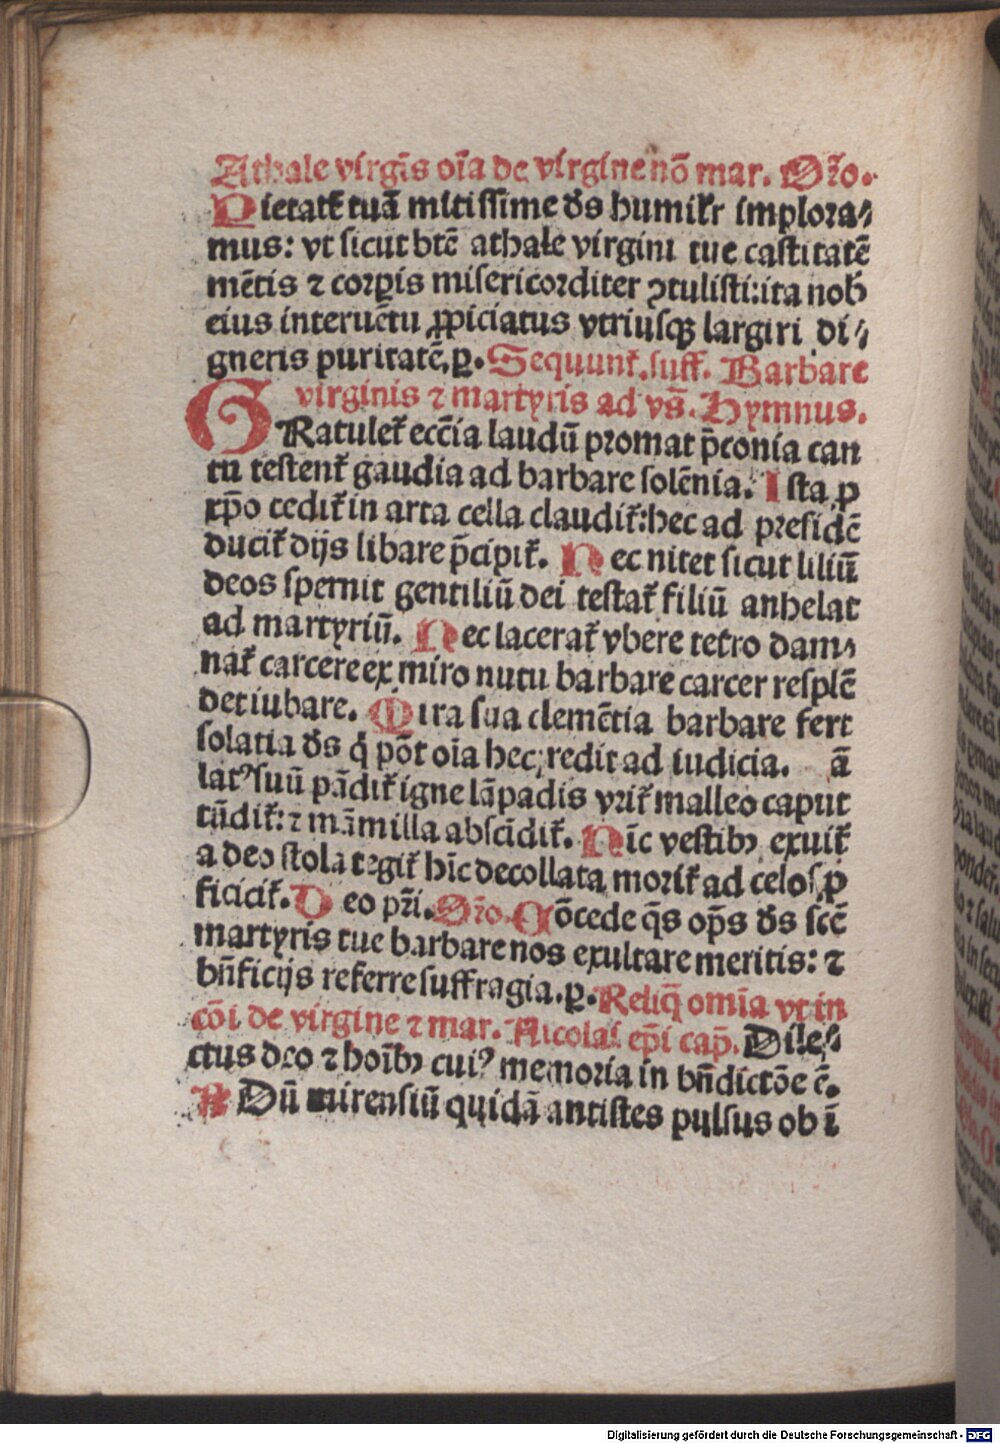 Athale virgĩs oĩa de virgine nõ mar. Oꝛ̃o.
Pietatẽ tuã mitissime d̃s humilr̃ imploꝛa⸗
mus: vt sicut btẽ athale virgini tue castitatẽ
mẽtis ⁊ coꝛꝑis misericoꝛditer ꝯtulisti: ita nob̃
eius interuẽtu ꝓpiciatus vtriusqꝫ largiri di⸗
gneris puritatẽ. ꝑ. Sequunt᷑. suff. Barbare
virginis ⁊ martyris ad vs̃. Hymnus.
GRatulet᷑ ecc̃ia laudũ pꝛomat p̃conia can
tu testent᷑ gaudia ad barbare solẽnia. Ista ꝓ
xp̃o cedit᷑ in arta cella claudit᷑: hec ad presidẽ
ducit᷑ dijs libare p̃cipit᷑. Nec nitet sicut liliũ
deos spernit gentiliũ dei testat᷑ filiũ anhelat
ad martyriũ. Nec lacerat᷑ vbere tetro dam⸗
nat᷑ carcere ex miro nutu barbare carcer resplẽ
det iubare. Mira sua clemẽtia barbare fert
solatia d̃s q̇ põt oĩa hec, redit ad iudicia. ã
latꝰ suũ pãdit᷑ igne lãpadis vrit᷑ malleo caput
tũdit᷑: ⁊ mãmilla abscĩdit᷑. Nĩc vestibꝫ exuit᷑
a deo stola tegit᷑ hĩc decollata moꝛit᷑ ad celos ꝑ
ficicit᷑. Deo pr̃i. Oꝛ̃o. Cõcede q̃s op̃s d̃s scẽ
martyris tue barbare nos exultare meritis: ⁊
bñficijs referre suffragia. ꝑ. Reliq̃ omĩa vt in
cõi de virgine ⁊ mar. Nicolai ep̃i cap̃. Dile⸗
ctus deo ⁊ hoĩbꝫ cuiꝰ memoꝛia in bñdictõe ẽ.
R Dũ mirensiũ quidã antistes pulsus ob ĩ
Digitalisierung gefördert durch die Deutsche Forschungsgemeinschaft - DFG